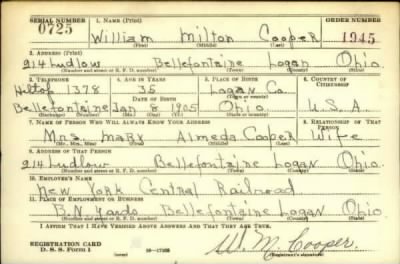 SERIAL NUMBER 1. NAME (Print) ORDER NUMBER
0725 William Milton Cooper 1945
(First) (Middle) (Last)
2. ADDRESS (Print)
214 Ludlow Bellefontaine Logan Ohio
(Number and street or R. F. D. number) (Town) (County) (State)
3. TELEPHONE 4. AGE IN YEARS 5. PLACE OF BIRTH 6. COUNTRY OF CITIZENSHIP
Hiltop 1378 35 Logan Co.
DATE OF BIRTH
Bellefontaine Jan 8 1905 Ohio U.S.A.
(Exchange) (Number) (Mo.) (Day) (Yr.) (State or country)
7. NAME OF PERSON WHO WILL ALWAYS KNOW YOUR ADDRESS 8. RELATIONSHIP OF THAT PERSON
Mrs. Mary Almeda Cooper Wife
(Mr., Mrs., Miss) (First) (Middle) (Last)
9. ADDRESS OF THAT PERSON
214 Ludlow Bellefontaine Logan Ohio
(Number and street or R. F. D. number) (Town) (County) (State)
10. EMPLOYER'S NAME
New York Central Railroad
11. PLACE OF EMPLOYMENT OR BUSINESS
B.N Yards Bellefontaine Logan Ohio
(Number and street or R. F. D. number) (Town) (County) (State)
I AFFIRM THAT I HAVE VERIFIED ABOVE ANSWERS AND THAT THEY ARE TRUE.
REGISTRATION CARD
D. S. S. FORM 1 (over) W. M. Cooper
(Registrant's signature)